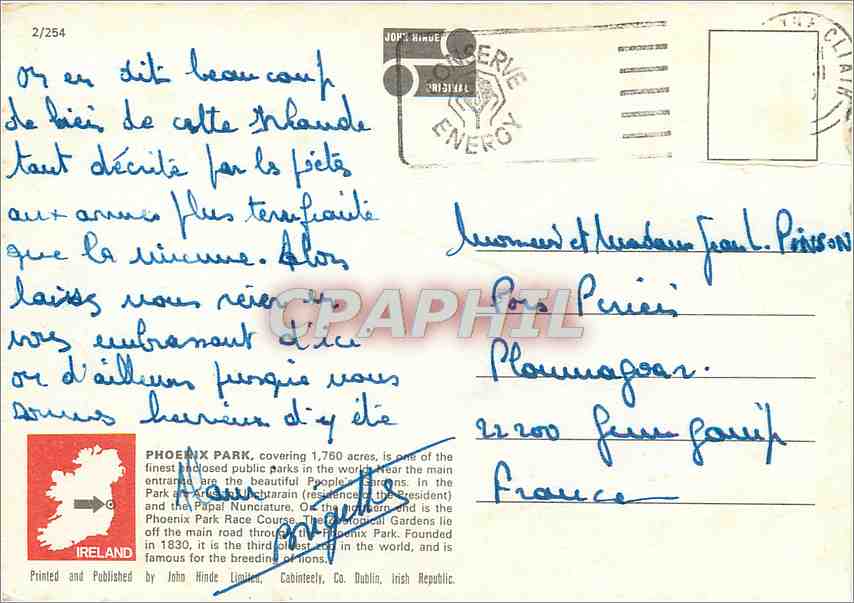 2/254
JOHN HINDE
ORIGINAL
CONSERVE
ENERGY
CLIATH
on en dit beaucoup
de bien de cette Irlande
tant décrite par les poètes
aux armes plus terrifiante
que la mienne. Alors
laissez nous rêver en
vous embrassant d'ici
ou d'ailleurs puisque nous
sommes heureux d'y été
Alain
Brigitte
Monsieur et Madame Jean L. PINSON
Pors
Ploumagoar.
22200 Guingamp
France
CPAPHIL
IRELAND
PHOENIX PARK, covering 1,760 acres, is one of the
finest enclosed public parks in the world. Near the main
entrance are the beautiful People's Gardens. In the
Park are Arus an Uachtarain (residence of the President)
and the Papal Nunciature. On the northern end is the
Phoenix Park Race Course. The Zoological Gardens lie
off the main road through the Phoenix Park. Founded
in 1830, it is the third oldest zoo in the world, and is
famous for the breeding of lions.
Printed and Published by John Hinde Limited, Cabinteely, Co. Dublin, Irish Republic.